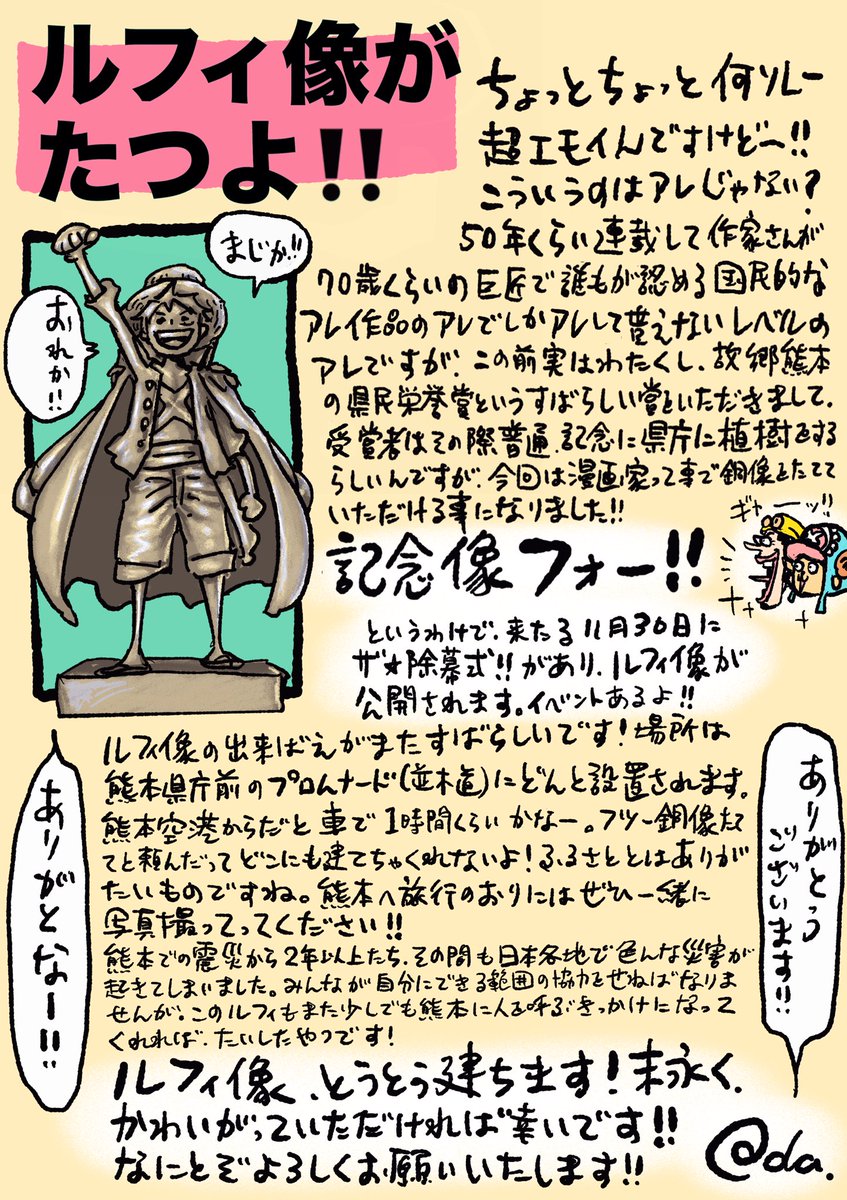 ルフィ像が
たつよ!!
ちょっとちょっと何ソレー
超エモイんですけど〜!!
こういうのはアレじゃない?
50年くらい連載して作家さんが
70歳くらいの巨匠で誰もが認める国民的な
アレ作品のアレでしかアレして貰えないレベルの
アレですが、この前実はわたくし、故郷熊本
の県民栄誉賞というすばらしい賞をいただきまして、
受賞者はその際普通、記念に県庁に植樹をする
らしいんですが、今回は漫画家って事で銅像をたてて
いただける事になりました!!
まじか!!
おれか!!
記念像フォー!!
ギャーーッ!!
というわけで、来たる11月30日に
ザ★除幕式!!があり、ルフィ像が
公開されます。イベントあるよ!!
ルフィ像の出来ばえがまたすばらしいです!場所は
熊本県庁前のプロムナード(並木道)にどんと設置されます。
熊本空港からだと車で1時間くらいかなー。フツー銅像たて
てと頼んだってどこにも建てちゃくれないよ!ふるさととはありが
たいものですね。熊本へ旅行のおりにはぜひ一緒に
写真撮ってってください!!
熊本での震災から2年以上たち、その間も日本各地で色んな災害が
起きてしまいました。みんなが自分にできる範囲の協力をせねばなりま
せんが、このルフィもまた少しでも熊本に人を呼ぶきっかけになって
くれれば、たいしたやつです!
ありがとなー!!
ありがとう
ございます!!
ルフィ像、とうとう建ちます!末永く、
かわいがっていただければ幸いです!!
なにとぞよろしくお願いいたします!!
@da.